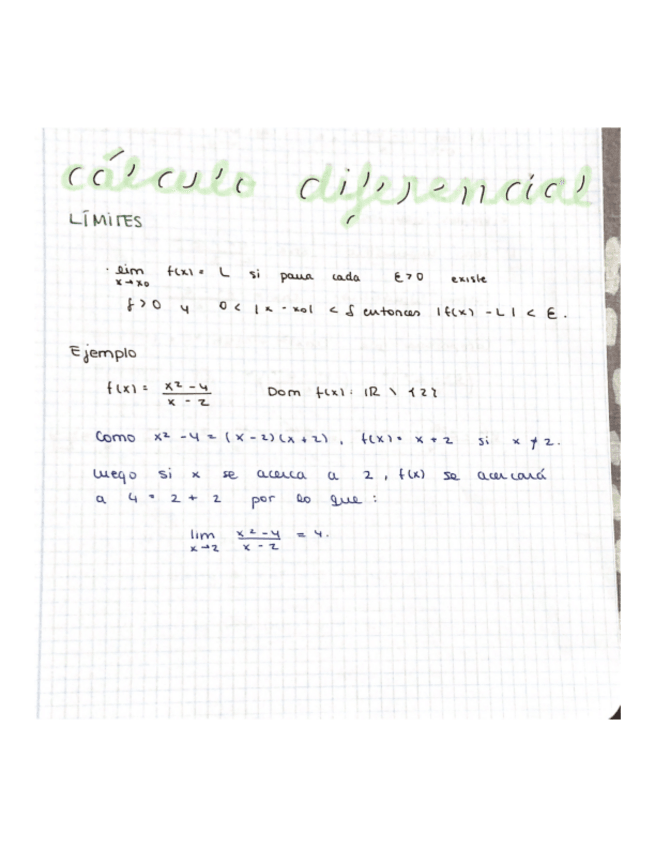 cálculo diferencial
LÍMITES
· lim f(x) = L si para cada ε > 0 existe
x→x0
δ > 0 y 0 < |x - x0| < δ entonces |f(x) - L| < ε.
Ejemplo
f(x) = x² - 4 / x - 2 Dom f(x): ℝ \ {2}
Como x² - 4 = (x - 2)(x + 2), f(x) = x + 2 si x ≠ 2.
Luego si x se acerca a 2, f(x) se acercará
a 4 = 2 + 2 por lo que:
lim x² - 4 / x - 2 = 4.
x→2